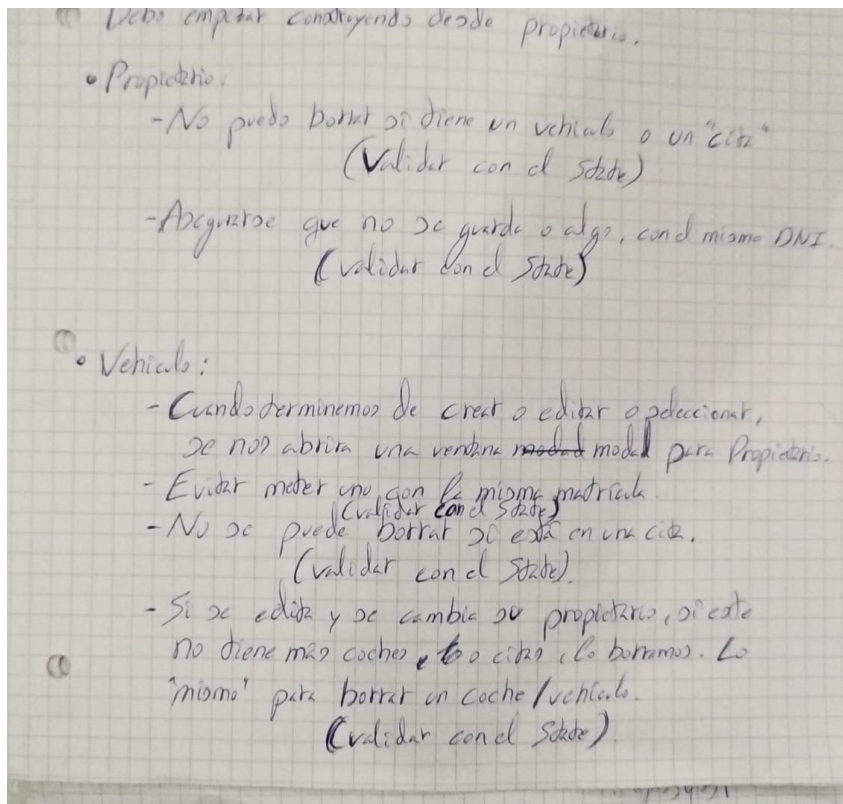 Debo empezar construyendo desde propietario.
• Propietario:
- No puedo borrar si tiene un vehiculo o un "cita"
(Validar con el State)
- Asegurarse que no se guarda o algo, con el mismo DNI.
(validar con el State)
• Vehiculo:
- Cuando terminemos de crear o editar o seleccionar,
se nos abrira una ventana modal para Propietario.
- Evitar meter uno con la misma matrícula.
(validar con el State)
- No se puede borrar si está en una cita.
(validar con el State).
- Si se edita y se cambia su propietario, si este
no tiene más coches, o citas, lo borramos. Lo
"mismo" para borrar un coche/vehículo.
(validar con el State).